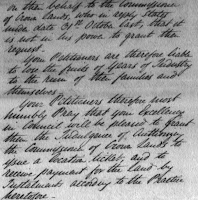 on this behalf to the Commissioner
of Crown Lands, who in reply states
under date 31st October last, that it
is not in his power to grant the
request.
Your Petitioners are therefore liable
to lose the fruits of years of Industry
to the ruin of their families and
themselves.
Your Petitioners therefore most
humbly Pray that your Excellency
in Council will be pleased to grant
them the Indulgence of Authorizing
the Commissioner of Crown Lands to
issue a location ticket, and to
receive payment for the Land by
Instalments according to the Practice
heretofore.